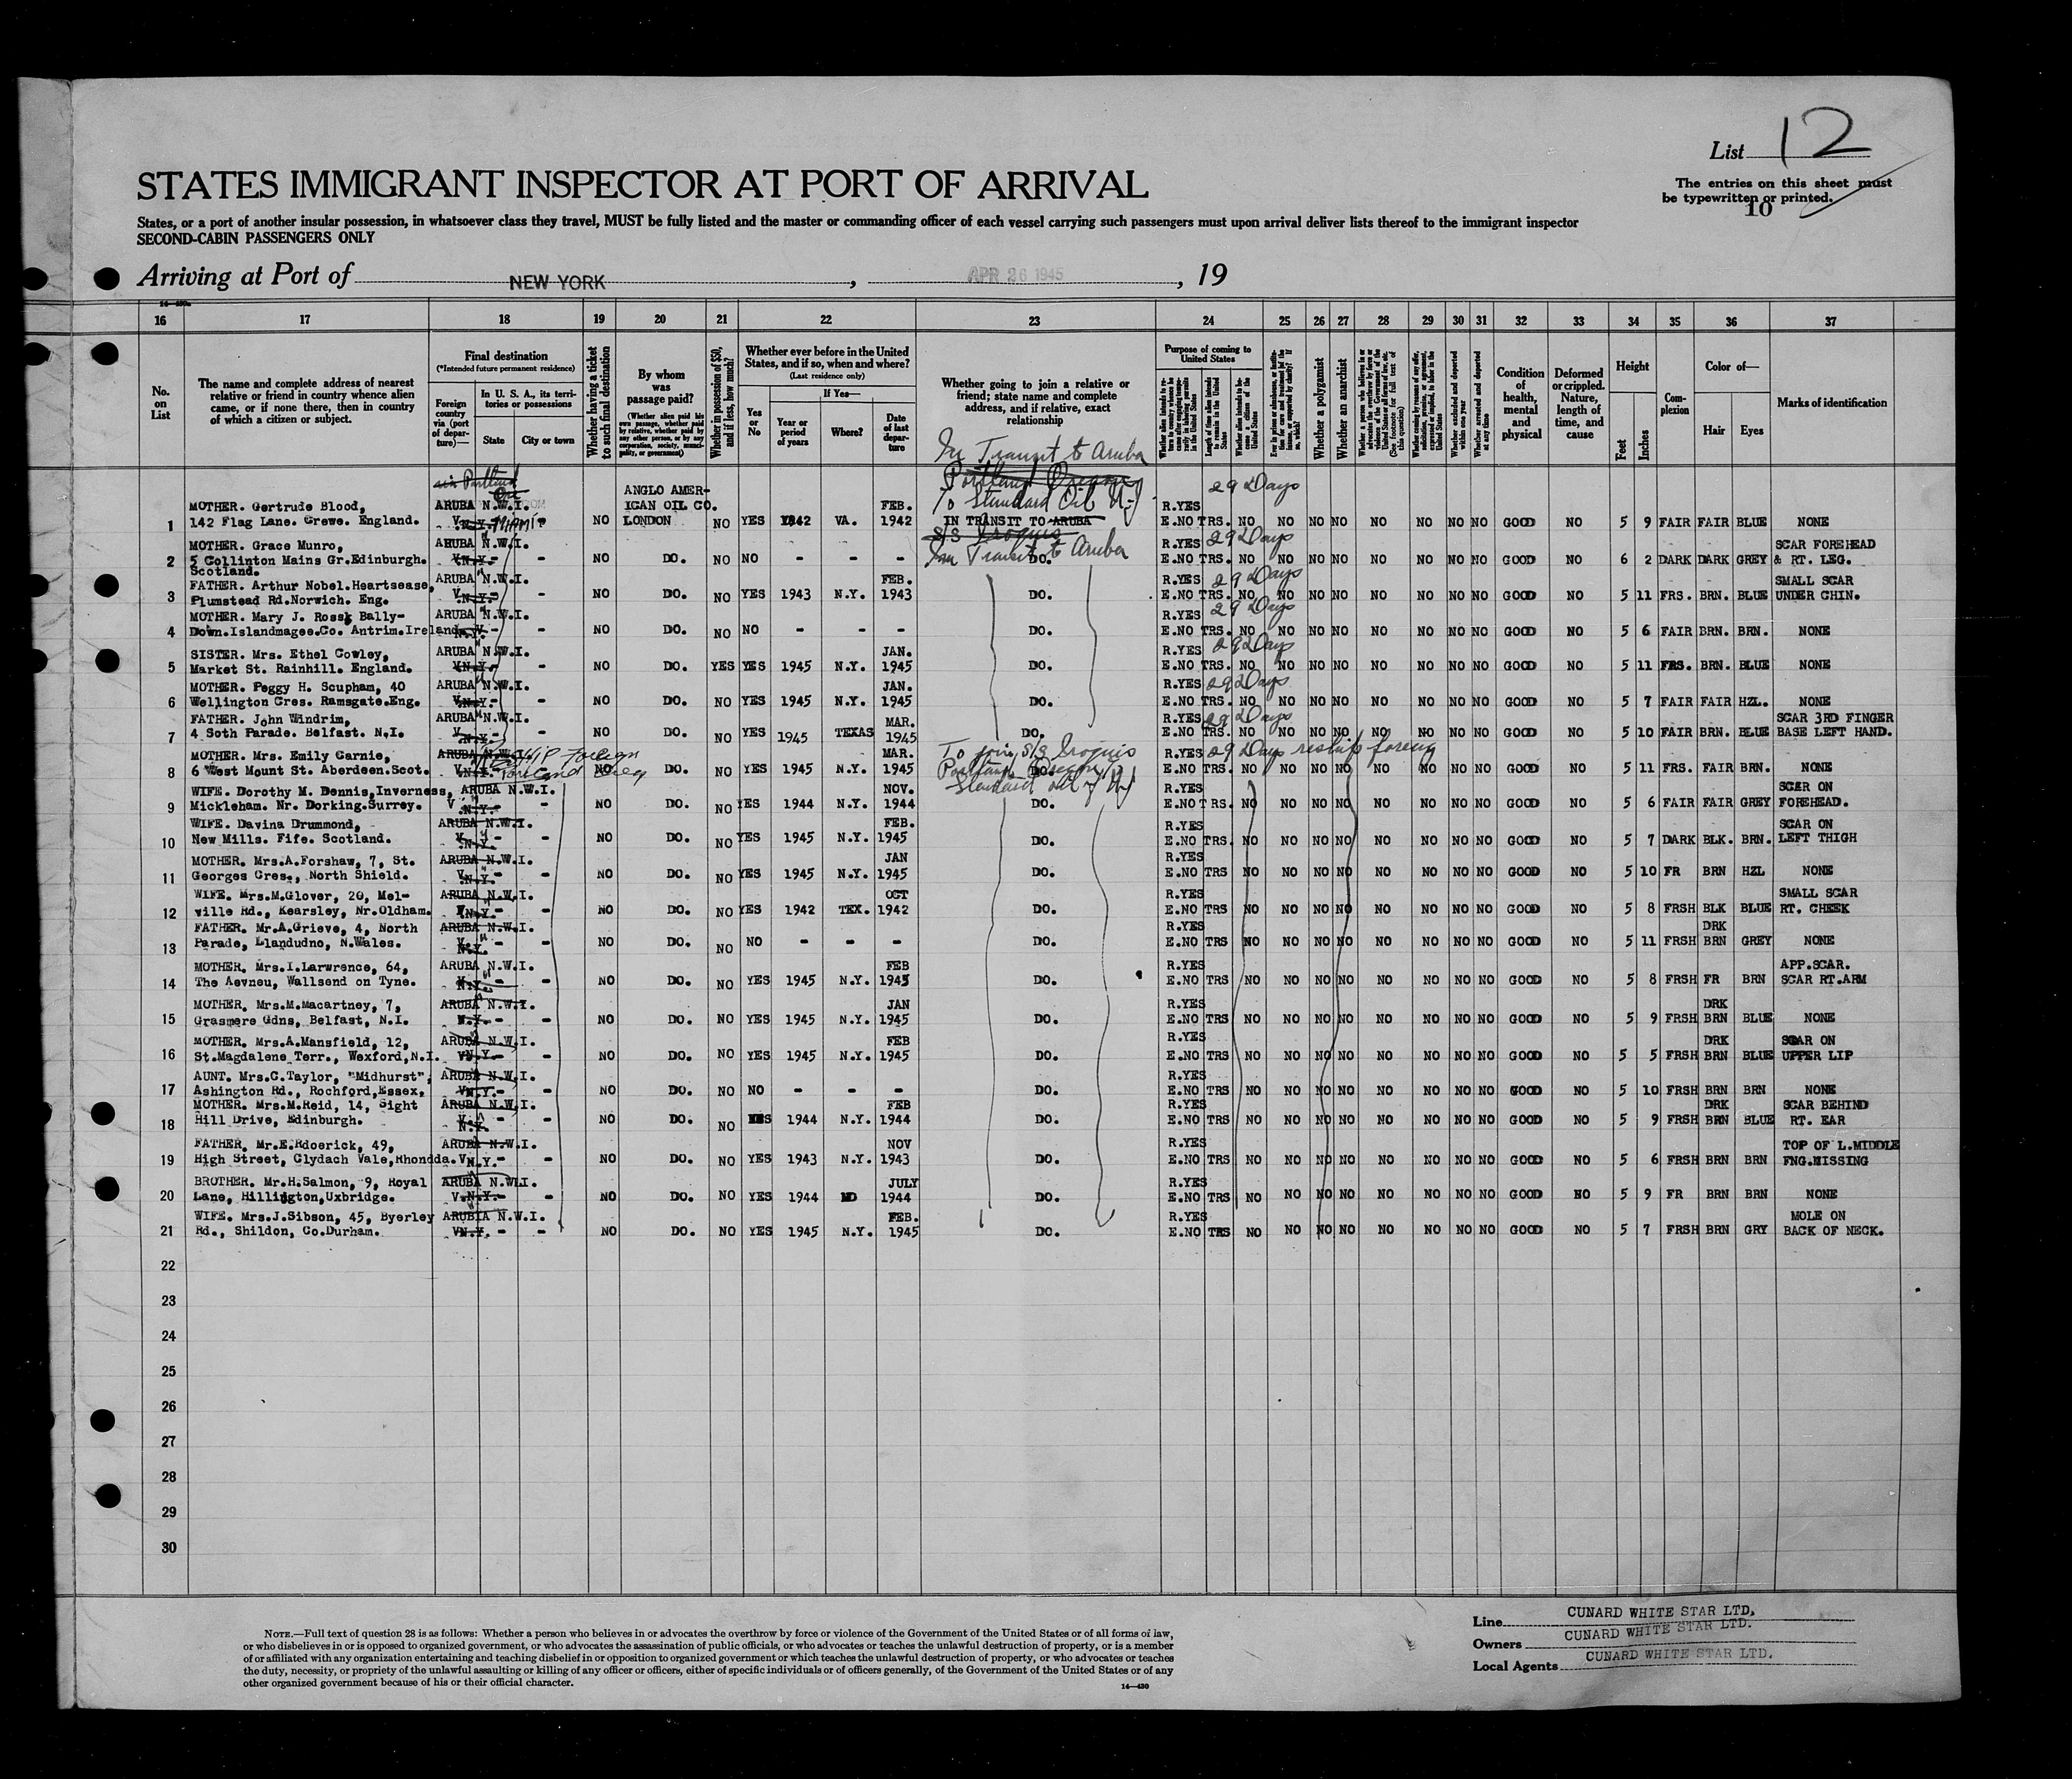 List 12
The entries on this sheet must
be typewritten or printed.
10
STATES IMMIGRANT INSPECTOR AT PORT OF ARRIVAL
States, or a port of another insular possession, in whatsoever class they travel, MUST be fully listed and the master or commanding officer of each vessel carrying such passengers must upon arrival deliver lists thereof to the immigrant inspector
SECOND-CABIN PASSENGERS ONLY
Arriving at Port of NEW YORK, APR 26 1945, 19
16 17 18 19 20 21 22 23 24 25 26 27 28 29 30 31 32 33 34 35 36 37
No. on List
The name and complete address of nearest relative or friend in country whence alien came, or if none there, then in country of which a citizen or subject.
Final destination
(*Intended future permanent residence)
Foreign country via (port of departure)—
In U. S. A., its territories or possessions
State
City or town
Whether having a ticket to such final destination
By whom was passage paid?
(Whether alien paid his own passage, whether paid by relative, whether paid by any other person, or by any corporation, society, municipality, or government)
Whether in possession of $50, and if less, how much?
Whether ever before in the United States, and if so, when and where?
(Last residence only)
If Yes—
Yes or No
Year or period of years
Where?
Date of last departure
Whether going to join a relative or friend; state name and complete address, and if relative, exact relationship
Purpose of coming to United States
Whether a polygamist
Whether an anarchist
Whether arrested and deported at any time
Condition of health, mental and physical
Deformed or crippled. Nature, length of time, and cause
Height
Feet
Inches
Complexion
Color of—
Hair
Eyes
Marks of identification
In Transit to Aruba
Portland Oregon
To Standard Oil NJ
1 MOTHER. Gertrude Blood, 142 Flag Lane. Crewe. England. ARUBA N.W.I. V.N.Y. MIAMI NO ANGLO AMERICAN OIL CO. LONDON NO YES 1942 VA. FEB. 1942 IN TRANSIT TO ARUBA R.YES E.NO TRS. 29 Days NO NO NO NO NO NO NO NO GOOD NO 5 9 FAIR FAIR BLUE NONE
S/S Iroquois
In Transit to Aruba
2 MOTHER. Grace Munro, 5 Collinton Mains Gr.Edinburgh. Scotland. ARUBA N.W.I. V.N.Y.- - NO DO. NO NO - - - DO. R.YES E.NO TRS. 29 Days NO NO NO NO NO NO NO NO GOOD NO 6 2 DARK DARK GREY SCAR FOREHEAD & RT. LEG.
3 FATHER. Arthur Nobel.Heartsease, Plumstead Rd.Norwich. Eng. ARUBA N.W.I. V.N.Y.- - NO DO. NO YES 1943 N.Y. FEB. 1943 DO. R.YES E.NO TRS. 29 Days NO NO NO NO NO NO NO NO GOOD NO 5 11 FRS. BRN. BLUE SMALL SCAR UNDER CHIN.
4 MOTHER. Mary J. Ross, Bally-Down.Islandmagee.Co. Antrim.Ireland. ARUBA N.W.I. V.N.Y.- - NO DO. NO NO - - - DO. R.YES E.NO TRS. 29 Days NO NO NO NO NO NO NO NO GOOD NO 5 6 FAIR BRN. BRN. NONE
5 SISTER. Mrs. Ethel Cowley, Market St. Rainhill. England. ARUBA N.W.I. V.N.Y.- - NO DO. YES YES 1945 N.Y. JAN. 1945 DO. R.YES E.NO TRS. 29 Days NO NO NO NO NO NO NO NO GOOD NO 5 11 FRS. BRN. BLUE NONE
6 MOTHER. Peggy H. Scupham, 40 Wellington Cres. Ramsgate.Eng. ARUBA N.W.I. V.N.Y.- - NO DO. NO YES 1945 N.Y. JAN. 1945 DO. R.YES E.NO TRS. 29 Days NO NO NO NO NO NO NO NO GOOD NO 5 7 FAIR FAIR HZL. NONE
7 FATHER. John Windrim, 4 Soth Parade. Belfast. N.I. ARUBA N.W.I. V.N.Y.- - NO DO. NO YES 1945 TEXAS MAR. 1945 DO. R.YES E.NO TRS. 29 Days NO NO NO NO NO NO NO NO GOOD NO 5 10 FAIR BRN. BLUE SCAR 3RD FINGER BASE LEFT HAND.
To join S/S Iroquois
Portland Oregon
Standard Oil of NJ
8 MOTHER. Mrs. Emily Garnie, 6 West Mount St. Aberdeen.Scot. ARUBA N.W.I. V.N.Y. Reship Foreign Portland Oreg NO DO. NO YES 1945 N.Y. MAR. 1945 DO. R.YES E.NO TRS. 29 Days reship foreing NO NO NO NO NO NO NO NO GOOD NO 5 11 FRS. FAIR BRN. NONE
9 WIFE. Dorothy M. Dennis,Inverness, Mickleham. Nr. Dorking.Surrey. ARUBA N.W.I. V N.Y.- - NO DO. NO YES 1944 N.Y. NOV. 1944 DO. R.YES E.NO TRS. NO NO NO NO NO NO NO NO GOOD NO 5 6 FAIR FAIR GREY SCAR ON FOREHEAD.
10 WIFE. Davina Drummond, New Mills. Fife. Scotland. ARUBA N.W.I. V.N.Y.- - NO DO. NO YES 1945 N.Y. FEB. 1945 DO. R.YES E.NO TRS. NO NO NO NO NO NO NO NO GOOD NO 5 7 DARK BLK. BRN. SCAR ON LEFT THIGH
11 MOTHER. Mrs.A.Forshaw, 7, St. Georges Cres., North Shield. ARUBA N.W.I. V.N.Y.- - NO DO. NO YES 1945 N.Y. JAN 1945 DO. R.YES E.NO TRS NO NO NO NO NO NO NO NO GOOD NO 5 10 FR BRN HZL NONE
12 WIFE. Mrs.M.Glover, 20, Mel-ville Rd., Kearsley, Nr.Oldham. ARUBA N.W.I. V.N.Y.- - NO DO. NO YES 1942 TEX. OCT 1942 DO. R.YES E.NO TRS NO NO NO NO NO NO NO NO GOOD NO 5 8 FRSH BLK BLUE SMALL SCAR RT. CHEEK
13 FATHER. Mr.A.Grieve, 4, North Parade, Llandudno, N.Wales. ARUBA N.W.I. V.N.Y. - NO DO. NO NO - - - DO. R.YES E.NO TRS NO NO NO NO NO NO NO NO GOOD NO 5 11 FRSH DRK BRN GREY NONE
14 MOTHER. Mrs.I.Larwrence, 64, The Aevneu, Wallsend on Tyne. ARUBA N.W.I. V.N.Y.- - NO DO. NO YES 1945 N.Y. FEB 1945 DO. R.YES E.NO TRS NO NO NO NO NO NO NO NO GOOD NO 5 8 FRSH FR BRN APP.SCAR. SCAR RT.ARM
15 MOTHER. Mrs.M.Macartney, 7, Grasmere Gdns, Belfast, N.I. ARUBA N.W.I. V.N.Y.- - NO DO. NO YES 1945 N.Y. JAN 1945 DO. R.YES E.NO TRS NO NO NO NO NO NO NO NO GOOD NO 5 9 FRSH DRK BRN BLUE NONE
16 MOTHER. Mrs.A.Mansfield, 12, St.Magdalene Terr., Wexford,N.I. ARUBA N.W.I. V.N.Y.- - NO DO. NO YES 1945 N.Y. FEB 1945 DO. R.YES E.NO TRS NO NO NO NO NO NO NO NO GOOD NO 5 5 FRSH DRK BRN BLUE SCAR ON UPPER LIP
17 AUNT. Mrs.C.Taylor, "Midhurst", Ashington Rd., Rochford,Essex, ARUBA N.W.I. V.N.Y.- - NO DO. NO NO - - - DO. R.YES E.NO TRS NO NO NO NO NO NO NO NO GOOD NO 5 10 FRSH BRN BRN NONE
18 MOTHER. Mrs.M.Reid, 14, Sight Hill Drive, Edinburgh. ARUBA N.W.I. V.N.Y.- - NO DO. NO YES 1944 N.Y. FEB 1944 DO. R.YES E.NO TRS NO NO NO NO NO NO NO NO GOOD NO 5 9 FRSH DRK BRN BLUE SCAR BEHIND RT. EAR
19 FATHER. Mr.E.Rdoerick, 49, High Street, Clydach Vale,Rhondda. ARUBA N.W.I. V.N.Y.- - NO DO. NO YES 1943 N.Y. NOV 1943 DO. R.YES E.NO TRS NO NO NO NO NO NO NO NO GOOD NO 5 6 FRSH BRN BRN TOP OF L.MIDDLE FNG.MISSING
20 BROTHER. Mr.H.Salmon, 9, Royal Lane, Hillington,Uxbridge. ARUBA N.W.I. V.N.Y.- - NO DO. NO YES 1944 MD JULY 1944 DO. R.YES E.NO TRS NO NO NO NO NO NO NO NO GOOD NO 5 9 FR BRN BRN NONE
21 WIFE. Mrs.J.Sibson, 45, Byerley Rd., Shildon, Co.Durham. ARUBIA N.W.I. V.N.Y.- - NO DO. NO YES 1945 N.Y. FEB. 1945 DO. R.YES E.NO TRS NO NO NO NO NO NO NO NO GOOD NO 5 7 FRSH BRN GRY MOLE ON BACK OF NECK.
22
23
24
25
26
27
28
29
30
NOTE.—Full text of question 28 is as follows: Whether a person who believes in or advocates the overthrow by force or violence of the Government of the United States or of all forms of law,
or who disbelieves in or is opposed to organized government, or who advocates the assassination of public officials, or who advocates or teaches the unlawful destruction of property, or is a member
of or affiliated with any organization entertaining and teaching disbelief in or opposition to organized government or which teaches the unlawful destruction of property, or who advocates or teaches
the duty, necessity, or propriety of the unlawful assaulting or killing of any officer or officers, either of specific individuals or of officers generally, of the Government of the United States or of any
other organized government because of his or their official character.
14—430
Line CUNARD WHITE STAR LTD.
Owners CUNARD WHITE STAR LTD.
Local Agents CUNARD WHITE STAR LTD.